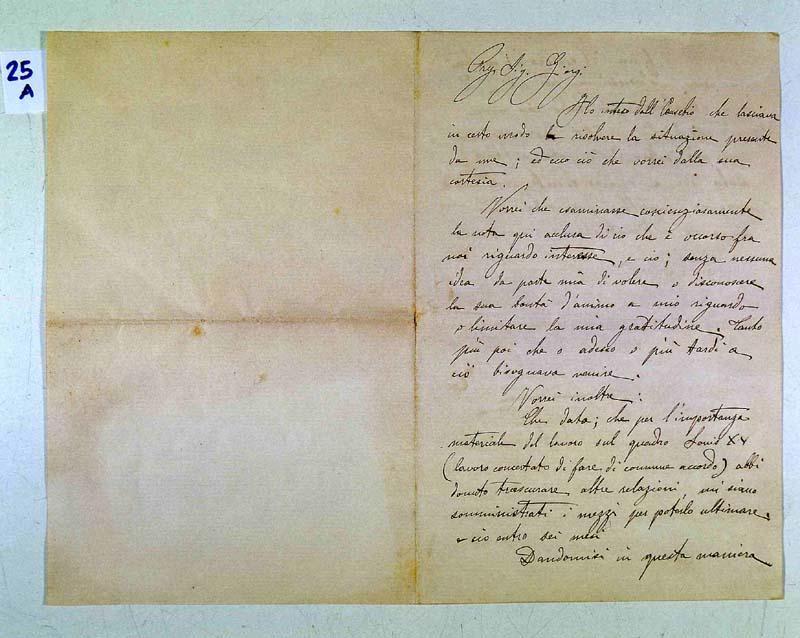 25
A
Preg. Sig. Giorgi
Ho inteso dall' Eusebio che lasciava
in certo modo risolvere la situazione presente
da me; ed ecco ciò che vorrei dalla sua
cortesia.
Vorrei che esaminasse coscienziosamente
la nota qui acclusa di ciò che è occorso fra
noi riguardo interesse, e ciò; senza nessuna
idea da parte mia di volere o disconoscere
la sua bontà d'animo a mio riguardo
o limitare la mia gratitudine. Tanto
più poi che o adesso o più tardi a
ciò bisognava venire.
Vorrei inoltre:
Che data; che per l'importanza
materiale del lavoro sul quadro Louis XV
(lavoro concertato di fare di comune accordo) abbi
dovuto trascurare altre relazioni, mi siano
somministrati i mezzi per poterlo ultimare
e ciò entro sei mesi
Dandomisi in questa maniera